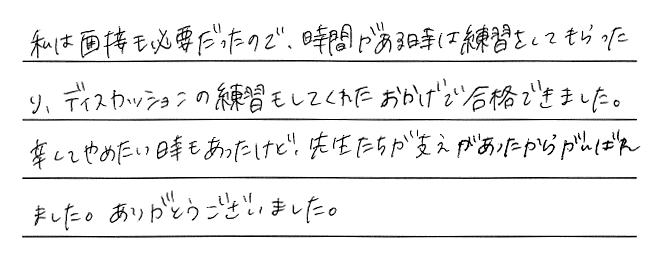 私は面接も必要だったので、時間がある時は練習をしてもらった
り、ディスカッションの練習もしてくれたおかげで合格できました。
辛くてやめたい時もあったけど、先生たちが支えがあったからがんばれ
ました。ありがとうございました。